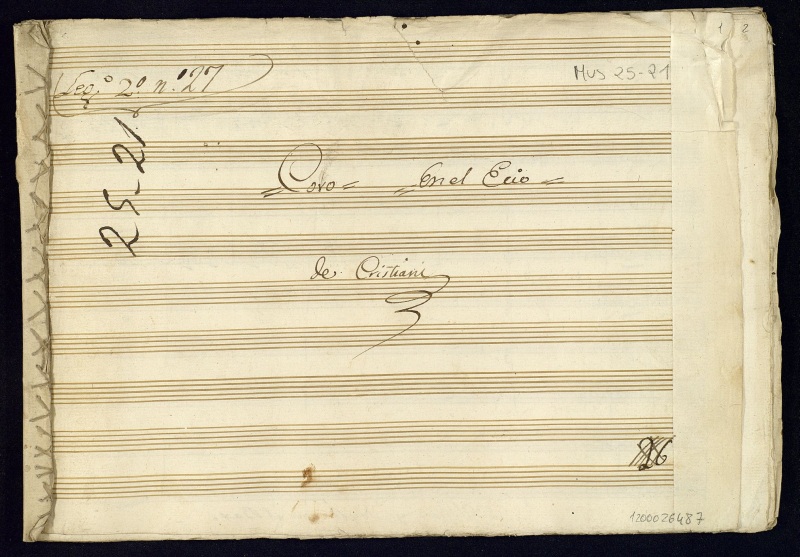 Leg.º 2.º n.º 27
MUS 25-21
25-21
Coro = En el Ecio =
de Cristiani
26
1200026487
1 2